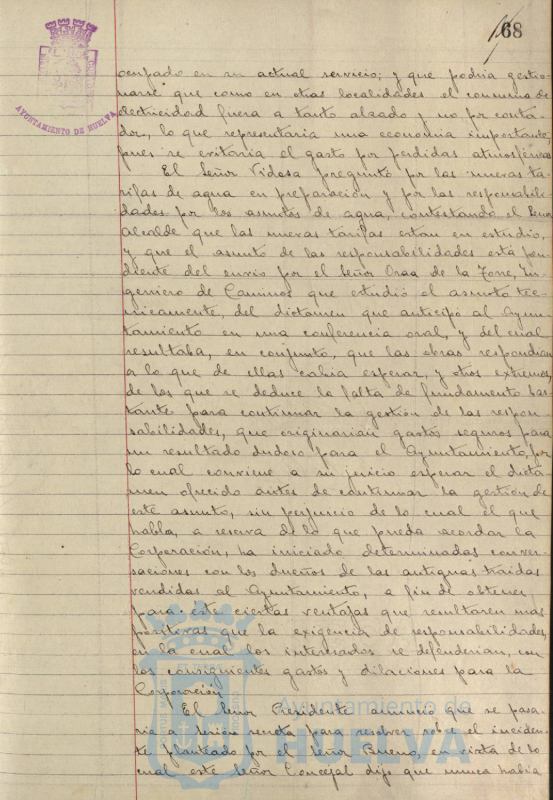 168
AYUNTAMIENTO DE HUELVA
ocupado en su actual servicio; y que podria gestio-
narse que como en otras localidades el consumo de
electricidad fuera a tanto alzado y no por conta-
dor, lo que representaria una economia importante,
pues se evitaria el gasto por perdidas atmosféricas
El Señor Vidosa preguntó por las nuevas ta-
rifas de agua en preparación y por las responsabili-
dades por los asuntos de agua, contestando el Señor
Alcalde que las nuevas tarifas estan en estudio,
y que el asunto de las responsabilidades está pen-
diente del envio por el Señor de la Torre, In-
geniero de Caminos que estudió el asunto téc-
nicamente, del dictamen que anticipó al Ayun-
tamiento en una conferencia oral, y del cual
resultaba, en conjunto, que las obras respondian
a lo que de ellas cabia esperar, y otros extremos,
de los que se deduce la falta de fundamento bas-
tante para continuar la gestión de las respon-
sabilidades, que originarian gastos seguros para
un resultado dudoso para el Ayuntamiento, por
lo cual conviene a su juicio esperar el dictá-
men ofrecido antes de continuar la gestión de
este asunto, sin perjuicio de lo cual el que
habla, a reserva de lo que pueda acordar la
Corporación, ha iniciado determinadas conver-
saciones con los dueños de las antiguas traidas
vendidas al Ayuntamiento, a fin de obtener
para este ciertas ventajas que resultaren mas
positivas que la exigencia de responsabilidades,
en la cual los interesados se defenderian, con
los consiguientes gastos y dilaciones para la
Corporación
El Señor Presidente anunció que se pasa-
ria a sesión secreta para resolver sobre el inciden-
te planteado por el Señor Bueno, en vista de lo
cual este Señor Concejal dijo que nunca habia
Ayuntamiento de
HUELVA